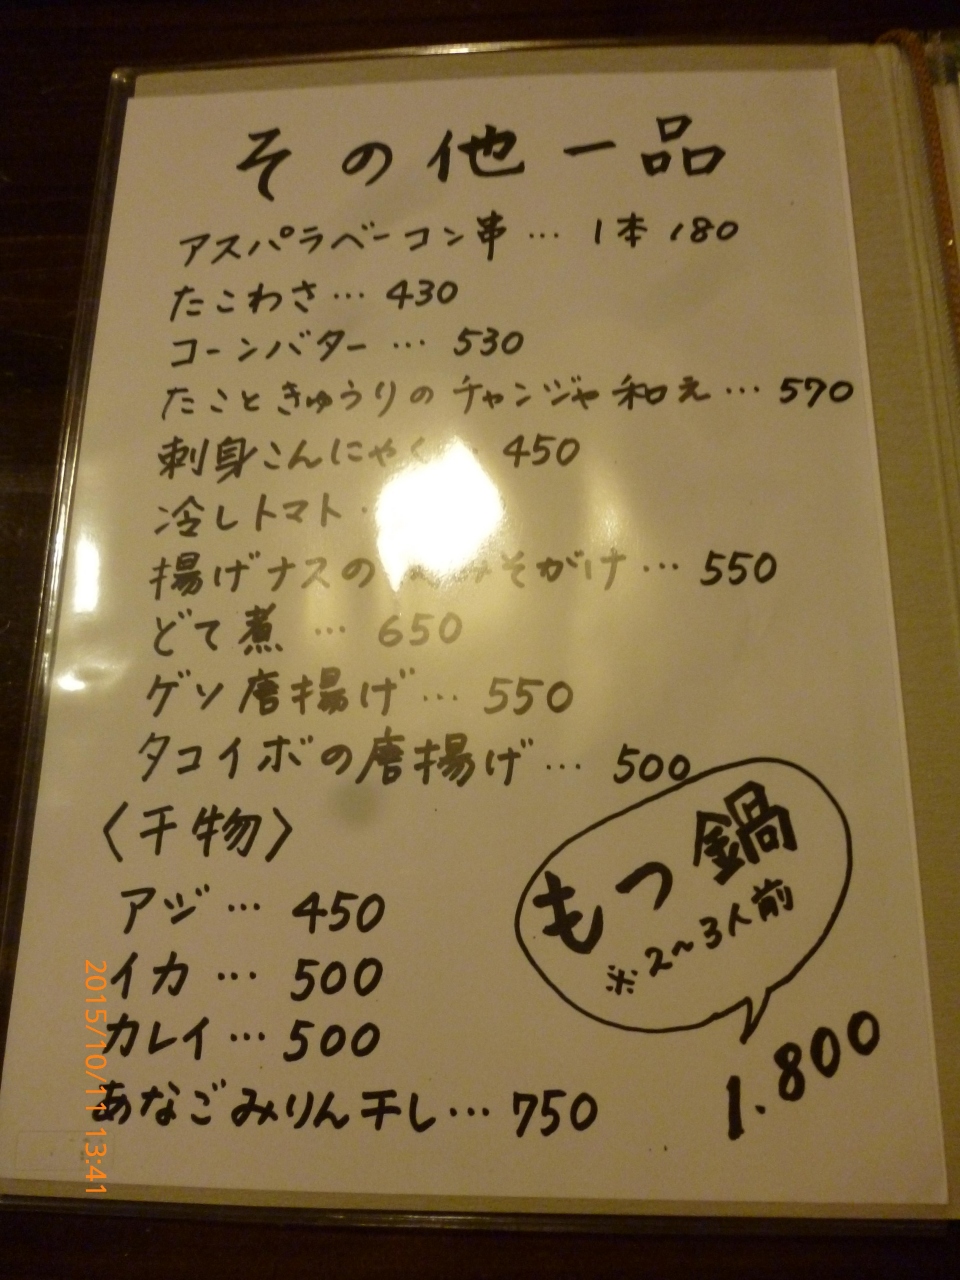 その他一品
アスパラベーコン串… 1本 180
たこわさ… 430
コーンバター … 530
たこときゅうりのチャンジャ和え… 570
刺身こんにゃく… 450
冷しトマト
揚げナスの みそがけ… 550
どて煮 … 650
ゲソ唐揚げ… 550
タコイボの唐揚げ… 500
〈干物〉
アジ… 450
イカ… 500
カレイ… 500
あなごみりん干し… 750
もつ鍋
※2~3人前
1.800
2015/10/11 13:41